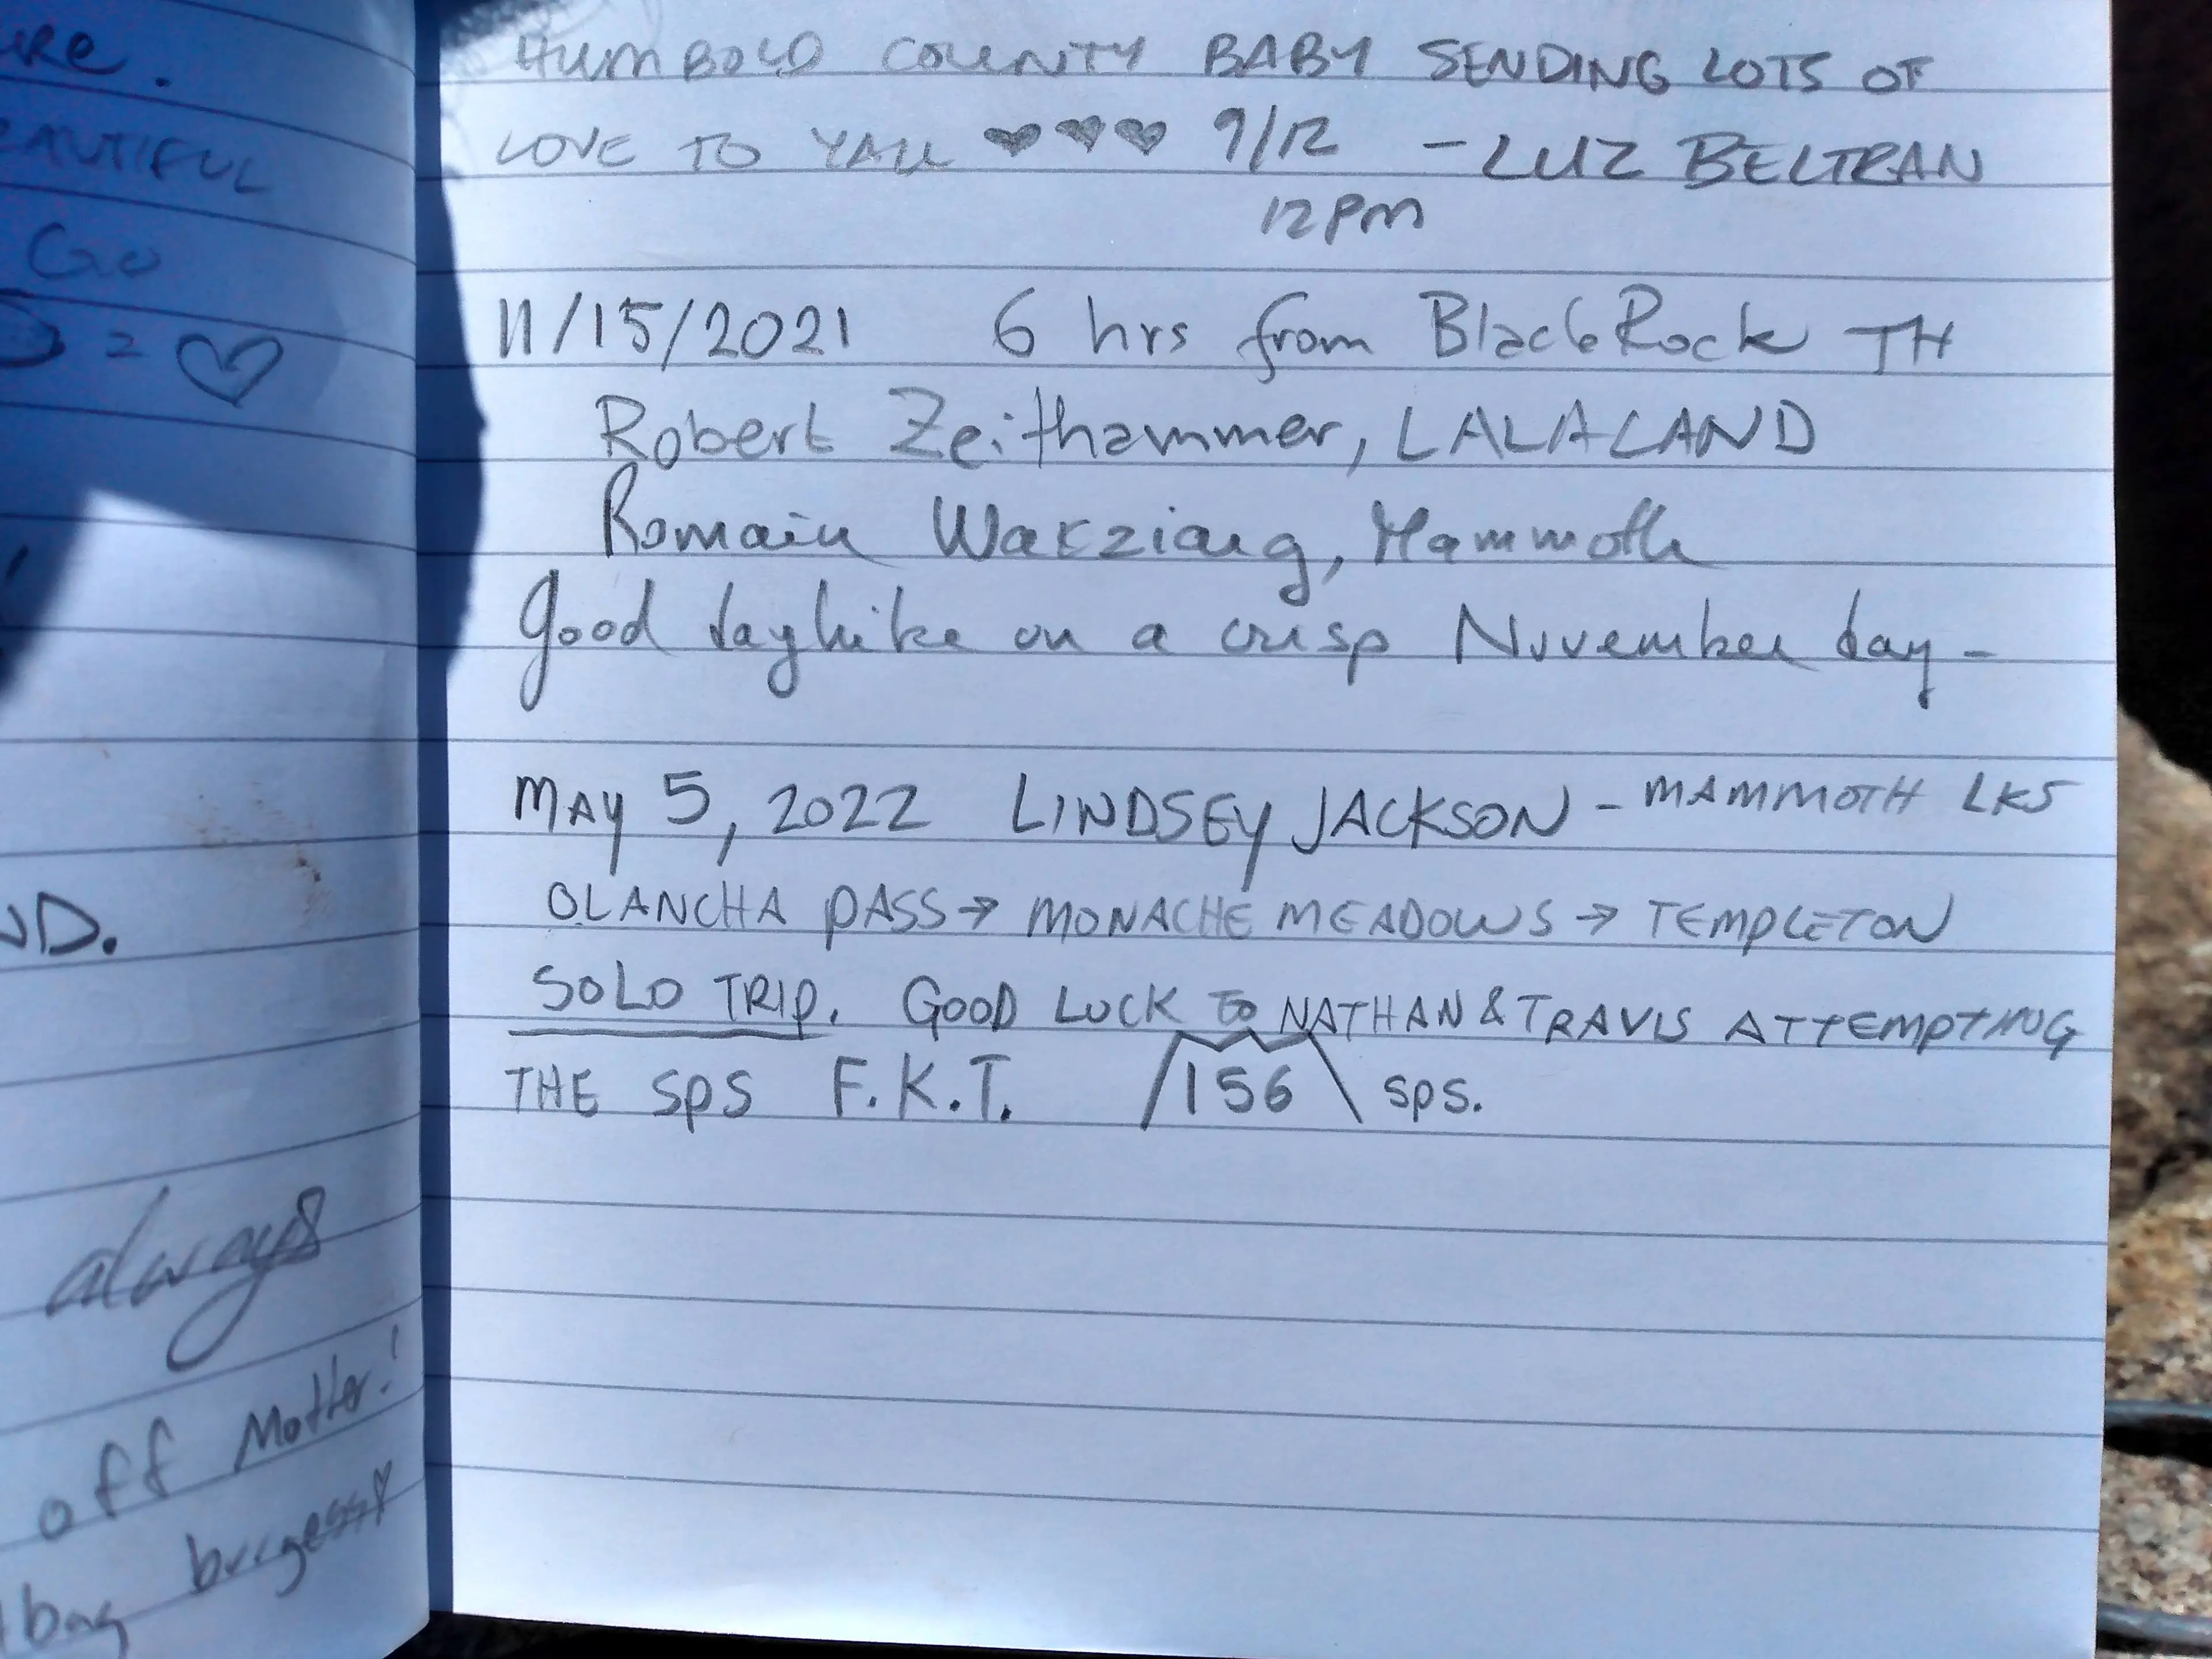 URE.
EAUTIFUL
GO
= ♡
ND.
always
off Motter!
bag burgess
HUMBOLD COUNTY BABY SENDING LOTS OF
LOVE TO YALL ♥♥♥ 9/12 - LUZ BELTRAN
12PM
11/15/2021 6 hrs from Black Rock TH
Robert Zeithammer, LALALAND
Romain Wacziarg, Mammoth
Good dayhike on a crisp November day -
MAY 5, 2022 LINDSEY JACKSON - MAMMOTH LKS
OLANCHA PASS → MONACHE MEADOWS → TEMPLETON
SOLO TRIP. GOOD LUCK TO NATHAN & TRAVIS ATTEMPTING
THE SPS F.K.T. /156\ SPS.